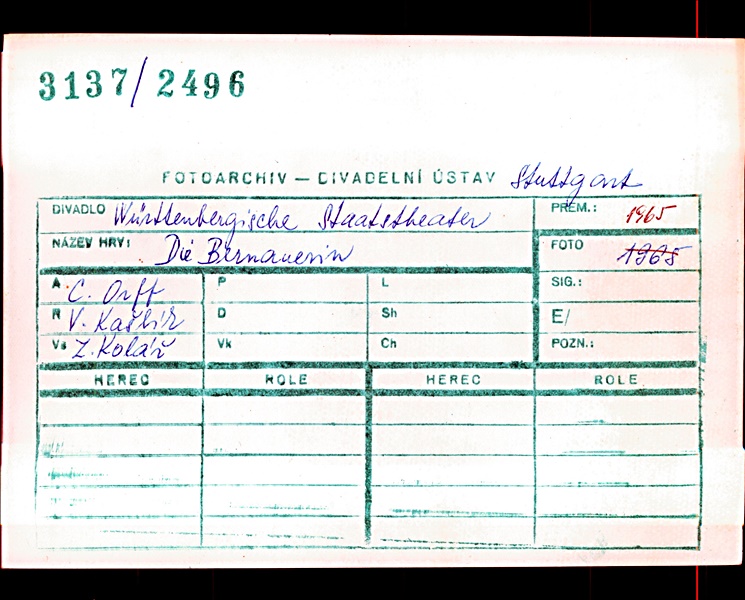 3137/2496
FOTOARCHIV — DIVADELNÍ ÚSTAV Stuttgart
DIVADLO Württenbergische Staatstheater PREM.: 1965
NÁZEV HRY: Die Bernauerin FOTO 1965
A C. Orff P L SIG.:
R V. Kašlík D Sh E/
Vs Z. Kolář Vk Ch POZN.:
HEREC ROLE HEREC ROLE